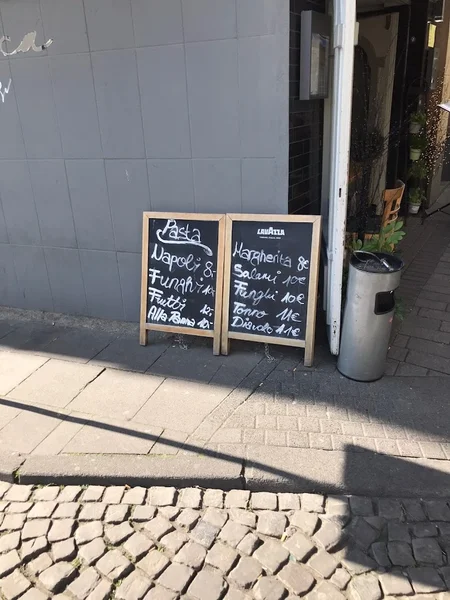 Pasta
Napoli 8,-
Funghi
Frutti 12,-
Alfa Panna 10,-
LAVAZZA
Margherita 8€
Salami 10€
Funghi 10€
Tonno 11€
Diavolo 11€